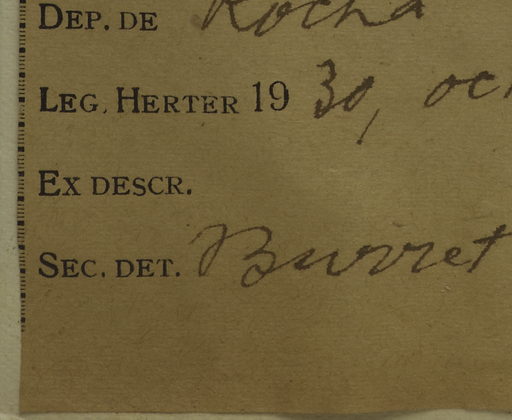 DEP. DE Rocha
LEG. HERTER 1930, oc
EX DESCR.
SEC. DET. Burret